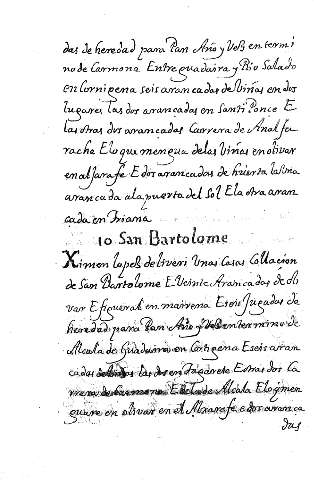 das de heredad para Pan Año y Vess en termi
no de Carmona Entre guadaira y Rio Salado
en Cornipena seis arancadas de Viñas en dos
lugares las dos arancadas en Santi Ponce E
las otras dos arancadas Carrera de Analfa
rache E lo que mengua de las Viñas en olivar
en alJarafe E dos arancadas de huerta la una
arancada a la puerta del Sol E la otra aran
çada en Triana
10 San Bartolome
Ximen lopes de liveri Unas Casas Collacion
de San Bartolome E Veinte Arançadas de oli
var E figueral en mairena E seis Jugadas de
heredad para Pan Año y Vess en termino de
Alcala de Guadaira en Cortigena E seis aran
cadas las dos en Tagarete E otras dos Ca
rrera de Carmona E de Alcala E lo q men
guare en olivar en el Alxarafe e dos arança
das